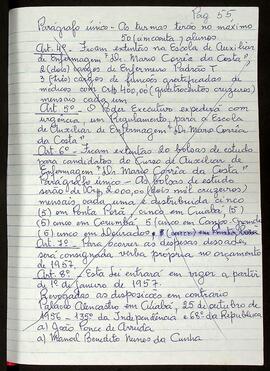 Pag 55,
Parágrafo único - As turmas terão no máximo
50 (cincoenta) alunos
Art. 4º - Ficam extintão na Escola de Auxiliar
de Enfermagem "Dr. Mario Corrêa da Costa"
2 (dois) cargos de Enfermeiro Padrão I.
3 (três) cargos de funções gratificadas de
médicos com Cr$ 400,00 (quatrocentos cruzeiros)
mensais cada um
Art. 5º - O Poder Executivo expedirá com
urgência um Regulamento, para a Escola
de Auxiliar de Enfermagem "Dr. Mario Corrêa
da Costa"
Art. 6º - Ficam extintão 20 bolsas de estudo
para candidatos do Curso de Auxiliar de
Enfermagem "Dr Mario Corrêa da Costa"
Parágrafo único - As bolsas de estudo
serão de Cr$ 2.000,00 (dois mil cruzeiros)
mensais, cada uma e distribuida cinco
(5) em Ponta Porã, cinco em Cuiabá, (5)
(5) cinco em Corumbá, 5 cinco em Campo Grande
(5) cinco em
Art. 7º - Para ocorrer as despesas dessa lei
será consignada verba propria no orçamento
de 1957.
Art. 8º - Esta lei entrará em vigor a partir
de 1º de janeiro de 1957.
Revogadas as disposições em contrário
Palácio Alencastro em Cuiabá, 25 de outubro de
1956 - 135º da Independência e 68º da Republica
a) João Ponce de Arruda
a) Manoel Benedito Nunes da Cunha